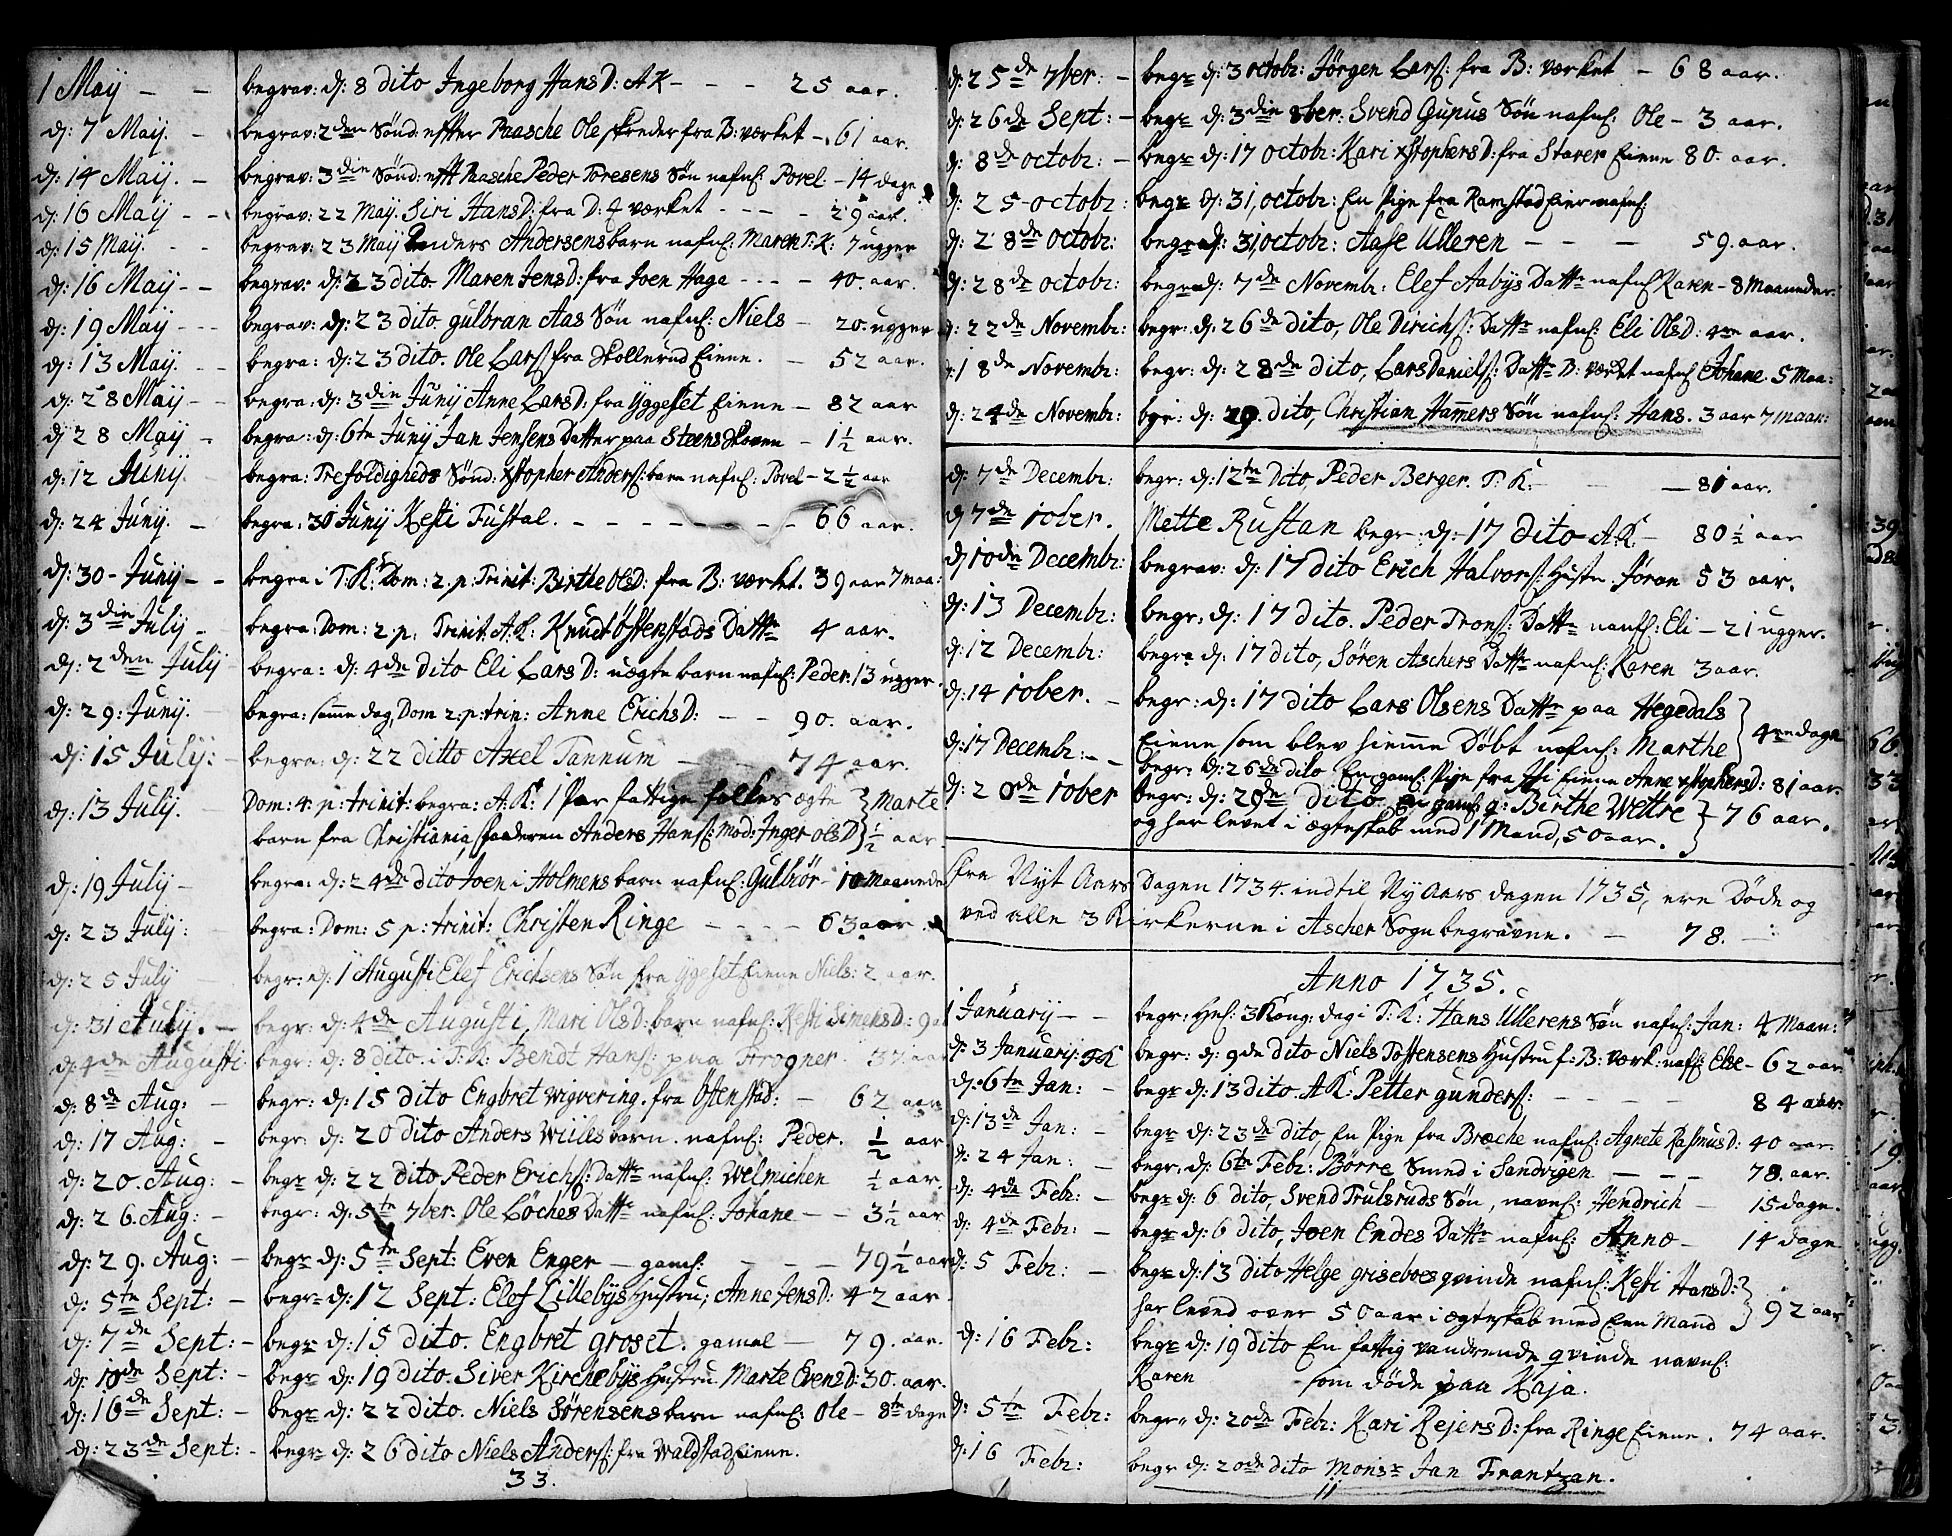 1 Maij - - begrav: d: 8 dito Ingeborg HansD: AK - - - 25 aar.
d: 7 Maij. - begrav: 2den Sønd: effter Paasche Ole skreder fra B: værket - 61 aar.
d: 14 Maij. - begrav: 3din Sønd: efft Paasche Peder Toresens Søn nafnl: Povel - 14 dage
d: 16 Maij - - begrav: 22 Maij Siri HansD: fra D: værket - - - - 29 aar.
d: 15 Maij. - - begrav: 23 Maij Anders Andersens barn nafnl: Maren T.K: 7 ugger
d: 16 Maij - - begrav: d: 23 dito Maren JensD: fra Joen Haga - - - - 40. aar.
d: 19 Maij - - - begrav: d: 23 dito gulbran Aas Søn nafnl: Niels - 20. ugger
d: 13 Maij. - - begra: d: 23 dito. Ole Lars: fra Skollerud Eiene. - 52 aar.
d: 28 Maij - - begra: d: 3din Junij Anne LarsD: fra Yggeset Eiene - 82 aar
d: 28 Maij - begra: d: 6te Junij Jan Jensens Datter paa Steens Skoven - 1½ aar.
d: 12 Junij. begra: Trefoldigheds Sønd: xstopher Anders: barn nafnl: Povel - 2½ aar
d: 24 Junij. - begra: 30 Junij Kesti Fustal. - - - - - - - 66 aar.
d: 30 - Junij - - begra i T:K: Dom: 2. p: Trinit: Birthe OlsD: fra B: værket. 39 aar 7 maa:
d: 3din Julij - - begra: Dom: 2. p: Trinit: A.K: Knud Østenstads Dattr 4 aar.
d: 2den Julij begra: d: 4de dito Eli LarsD: uegte barn nafnl: Peder. 13 ugger.
d: 29: Junij. begra: samme dag, Dom 2: p: trin: Anne ErichsD: - - 90. aar.
d: 15 Julij: - begra: d: 22 ditto Axel Tannum - - 74 aar.
d: 13 Julij. Dom: 4 p: trinit: begra: A.K: 1 Par fattige folkes ægte } Marte
barn fra Christiania, faaderen Anders Hans: Mod: Inger OlsD } ½ aar.
d: 19 Julij - begra: d: 24de dito Joen i Holmens barn nafnl: Gulbiør - 10 Maaneder
d: 23 Julij: begra: Dom: 5 p: trinit: Christen Ringe - - - - 63 aar.
d: 25 Julij begr: d: 1 Augusti Elef Erichsens Søn fra Ygeset Eiene Niels: 2 aar.
d: 31 Julij. - begr: d: 4de Augusti, Mari OlsD: barn nafnl: Kesti SimensD: 9 aa
d: 4de Augusti: begr: d: 8 dito. i T: K: Bendt Hans: paa Frogner 37. aar
d: 8de Aug: - begr: d: 15 dito Engbret wigvering. fra Østenstad: - 62 aar
d: 17 Aug: - begr: d: 20 dito Anders Wiiels barn. nafnl: Peder. ½ aar
d: 20. Aug: - begr d: 22 dito Peder Erichs: Dattr nafnl: Welmichen ½ aar.
d: 26. Aug: - begr: d: 5te 7ber. Ole Løches Dattr nafnl: Johane - - 3½ aar
d: 29. Aug: - begr d: 5te Sept: Even Enger - gaml: - - - 79½ aar
d: 5te Sept: - begr d: 12 Sept: Elef Lillebijs Hustru; Anne JensD: 42 aar.
d: 7de Sept: - begr d: 15 dito. Engbret groset. gamal - 79. aar.
d: 10de Sept: - begr d: 19 dito. Siver Kirchebijs Hustru Marte EvensD: 30. aar.
d: 16de Sept: - begr d: 22 dito. Niels Sørensens barn nafnl: Ole - 8te dage
d: 23de Sept: - begr d: 26 dito Niels Anders: fra Waldstad Eiene.
33.
d: 25de 7ber: - begr d: 3 octobr: Jørgen Lars: fra B: værket - 68 aar.
d: 26de Sept: - begr d: 3din 8ber: Svend Gupus Søn nafnl: Ole - 3 aar.
d: 8de octobr: - begr d: 17 octobr: Kari xstophersD: fra Starer Eiene 80. aar.
d: 25 octobr: begr d: 31, octobr: En Pige fra Ramstad Eier nafnl:
d: 28de octobr: begr d: 31, octobr: Aase Ulleren - - - 59. aar.
d: 28de octobr: begr d: 7de Novembr: Elef Aabijs Dattr nafnl Karen - 8 Maaneder.
d: 22de Novembr: begr: d: 26de dito, Ole Dirichs: Dattr nafnl: Eli OlsD: 4re aar.
d: 18de Novembr: begr: d: 28de dito, Lars Daniels: Dattr B: værket nafnl Johane. 5 Maa:
d: 24de Novembr: bgr: d: 29. dito, Christian Hamers Søn nafnl: Hans. 3 aar 7 maan:
d: 7de Decembr: begr: d: 12te Dito Peder Berger. T: K: - - 81 aar.
d: 7de 10ber. Mette Rustan begr: d: 17 dito A.K. - 80½ aar
d: 10de Decembr: begrav: d: 17 dito Erich Halvors: Hustr Jøran 53 aar.
d: 13 Decembr: begr: d: 17 dito. Peder Trons: Dattr nanfl: Eli - 21 ugger.
d: 12 Decembr: begr d: 17 dito, Søren Aschers Dattr nafnl: Karen 3 aar.
d: 14 10ber. - begr: d: 17 dito Lars Olsens Dattr paa Hegedals }
d: 17 Decembr: - - Eiene som blev hieme Døbt nafnl: Marthe } 4re dage
begr: d: 26de dito En gaml: Pige fra Eiene Anne xstophersD: 81 aar.
d: 20de 10ber begr: d: 29de dito En gaml q: Birthe Wettre }
og har levet i ægteskab med 1 Mand, 50 aar. } 76 aar.
fra Nyt Aars Dagen 1734. indtil Ny Aars dagen 1735, ere Døde og
ved alle 3 Kirkerne i Ascher Sogn begravne. - 78. -
Anno 1735.
1 Januarij - - begr: Hel: 3 Kong: dag i T: K: Hans Ullerens Søn nafnl: Jan: 4 Maan:
d: 3 Januarij: TK begr: d: 9de dito Niels Tostensens Hustru f: B: værk: nafl: Else - 62 aar
d: 6te Jan: - begr d: 13 dito A.K: Petter gunders: - - - - 84 aar:
d: 13de Jan: - begr d: 23de dito, En Pige fra Bræche nafnl: Agnete RasmusD: 40 aar.
d: 24 Jan: - begr: d: 6te Febr: Børre Smed i Sandvigen - - 78. aar.
d: 4de Febr: - begr d: 6 dito, Svend Trulsruds Søn, navnl: Hendrich - 15 dage.
d: 4de Febr: - begr d: 6 dito, Joen Endes Dattr nafnl: Anne - 14 dage
d: 5 Febr: - begr d: 13 dito Helge griseboes qvinde nafnl: Kesti HansD: }
har leved over 50 aar i ægteskab med Een Mand } 92 aar
d: 16 Febr: begr d: 19 dito En fattig vandrende qvinde navnl:
Karen som døde paa Kaja.
d: 5te Febr: begr d: 20de Febr: Kari RejersD: fra Ringe Eiene. 74 aar.
d: 16 Febr: begr d: 20de dito Monsr Jan Frantzan.
11